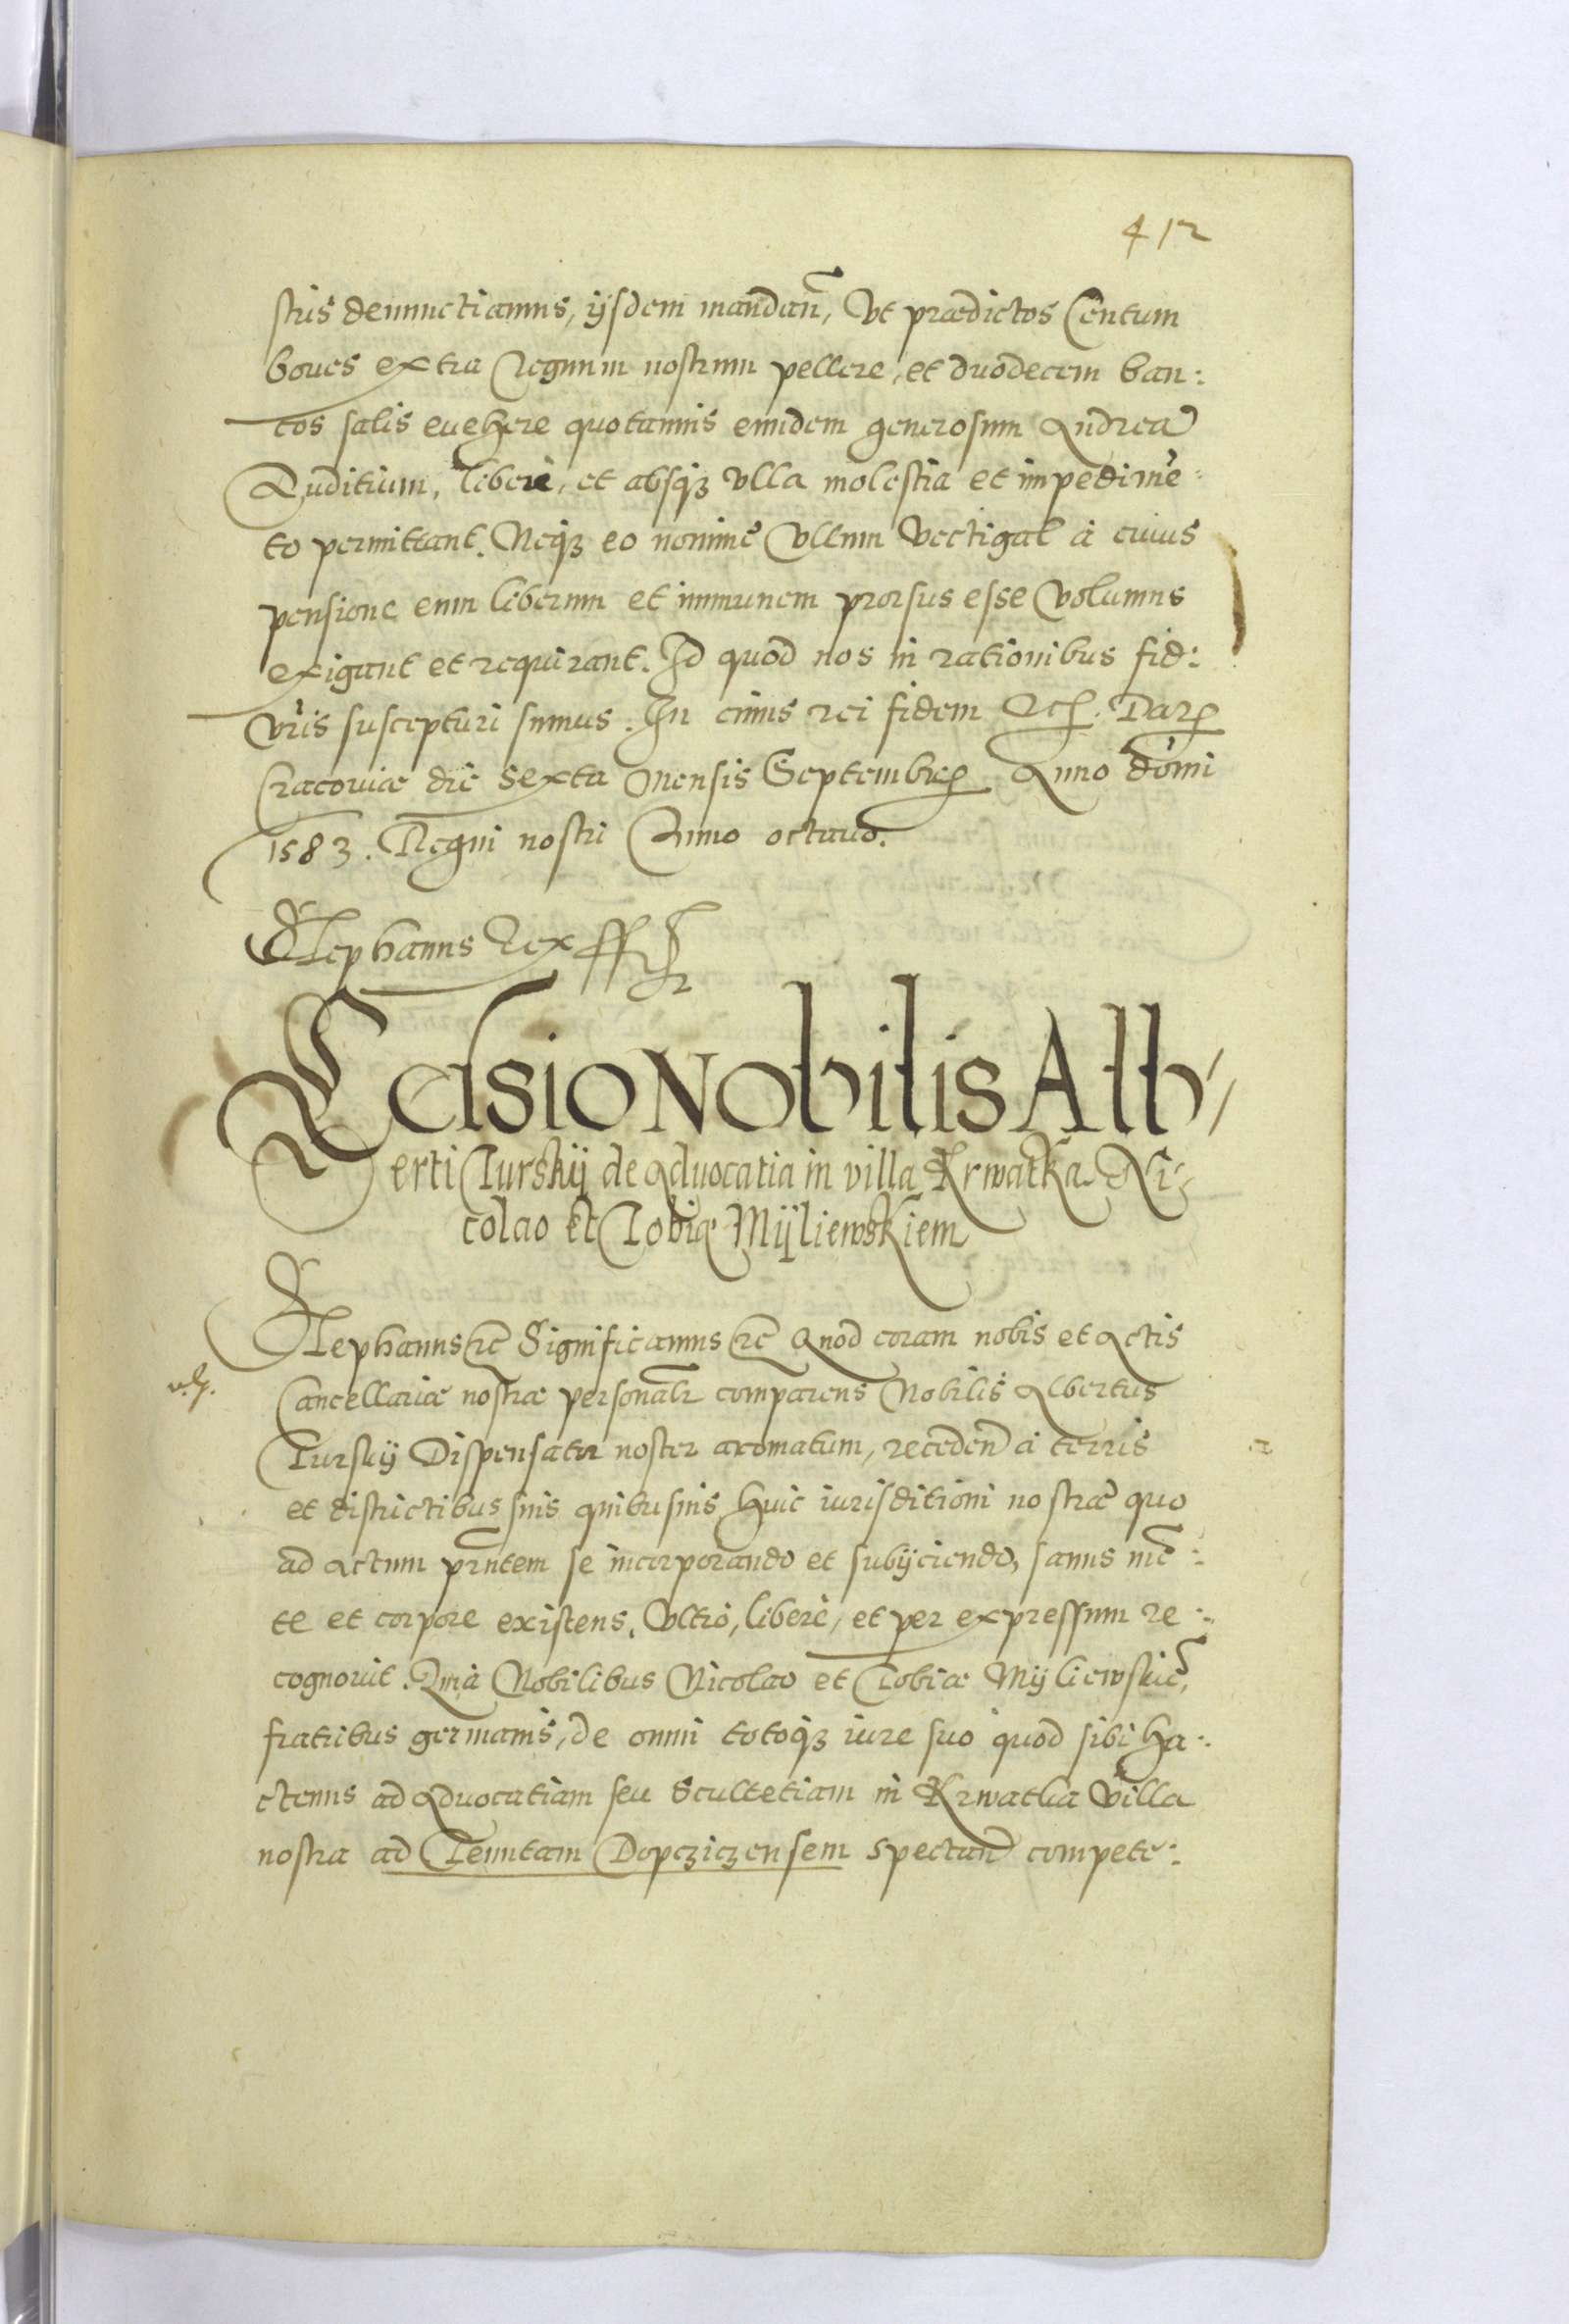 412
stris denunctiamus, ijsdem mandan, Vt prædictos Centum
boues extra Regnum nostrum pellere, et duodecem ban:
cos salis euehere quotannis eundem generosum Andrea
Auditium, libere, et absqз vlla molestia et impedimē:
to permittant. Neqз eo nomine Vllum Vectigal à cuius
pensione eum liberum et immunem prorsus esse Volumus
exigant et requirant. Id quod nos in rationibus fid:
Vris suscepturi sumus. In cuius rei fidem &c. Dat
Cracoviæ die Sexta Mensis Septembr Anno domi
1583. Regni nostri Anno octauo.
Stephanus Rex
Cessio Nobilis Alb,
erti Turskij de Aduocatia in villa Krwatka Ni:
colao et Tobiæ Mijliewskiem
Stephanus &c Significamus &c Quod coram nobis et Actis
Cancellariæ nostræ personalr comparens Nobilis Albertus
Turskij Dispensator noster aromatum, receden à terris
et districtibus suis quibusuis huic iurisditioni nostræ quo
ad Actum prntem se incorporando et subijciendo, sanus mē:
te et corpore existens, Vltro, libere, et per expressum re:
cognovit. Quia Nobilibus Nicolao et Tobiæ Mijliewskie,
fratribus germanis, de omni totoqз iure suo quod sibi ha:
ctenus ad Aduocatiam seu Scultetiam in Krwatka Villa
nostra ad Tenutam Dopcziczensem spectan compete: